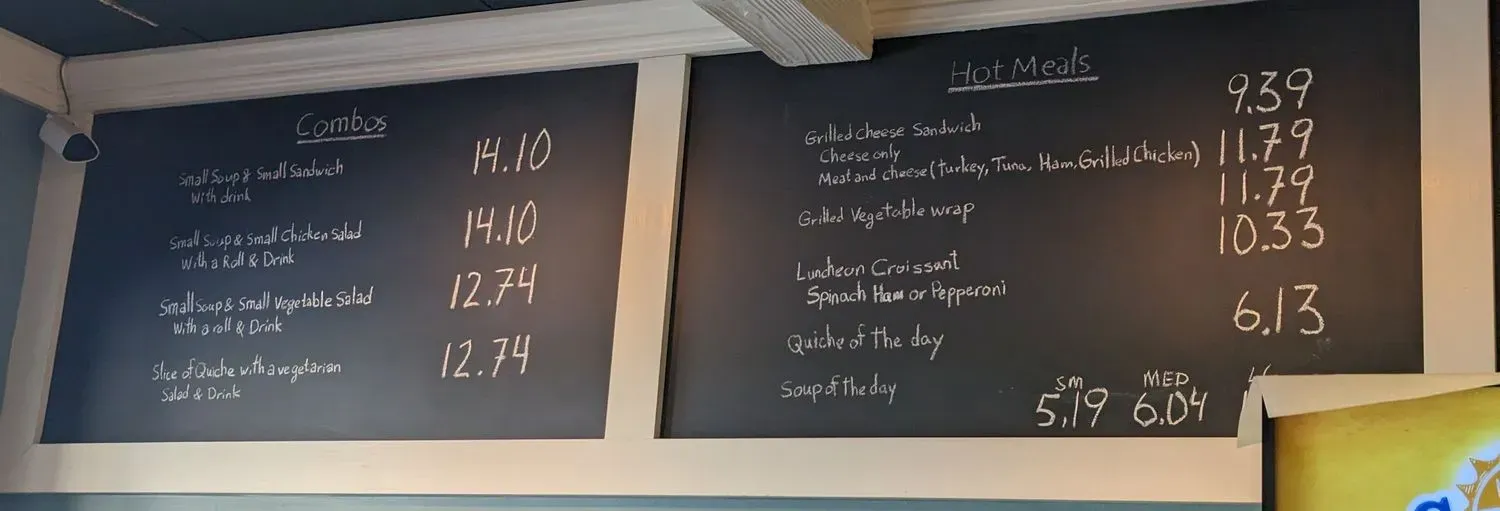 Combos
Small Soup & Small Sandwich 14.10
With drink
Small Soup & Small Chicken Salad 14.10
With a Roll & Drink
Small Soup & Small Vegetable Salad 12.74
With a roll & Drink
Slice of Quiche with a vegetarian 12.74
Salad & Drink
Hot Meals
Grilled cheese Sandwich
Cheese only 9.39
Meat and cheese (Turkey, Tuna, Ham, Grilled Chicken) 11.79
Grilled Vegetable wrap 11.79
Luncheon Croissant 10.33
Spinach Ham or Pepperoni
Quiche of The day 6.13
SM MED
Soup of the day 5.19 6.04